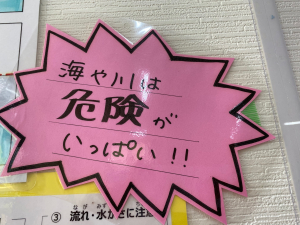 海や川は
危険が
いっぱい!!
③ 流れ・水がさに注意